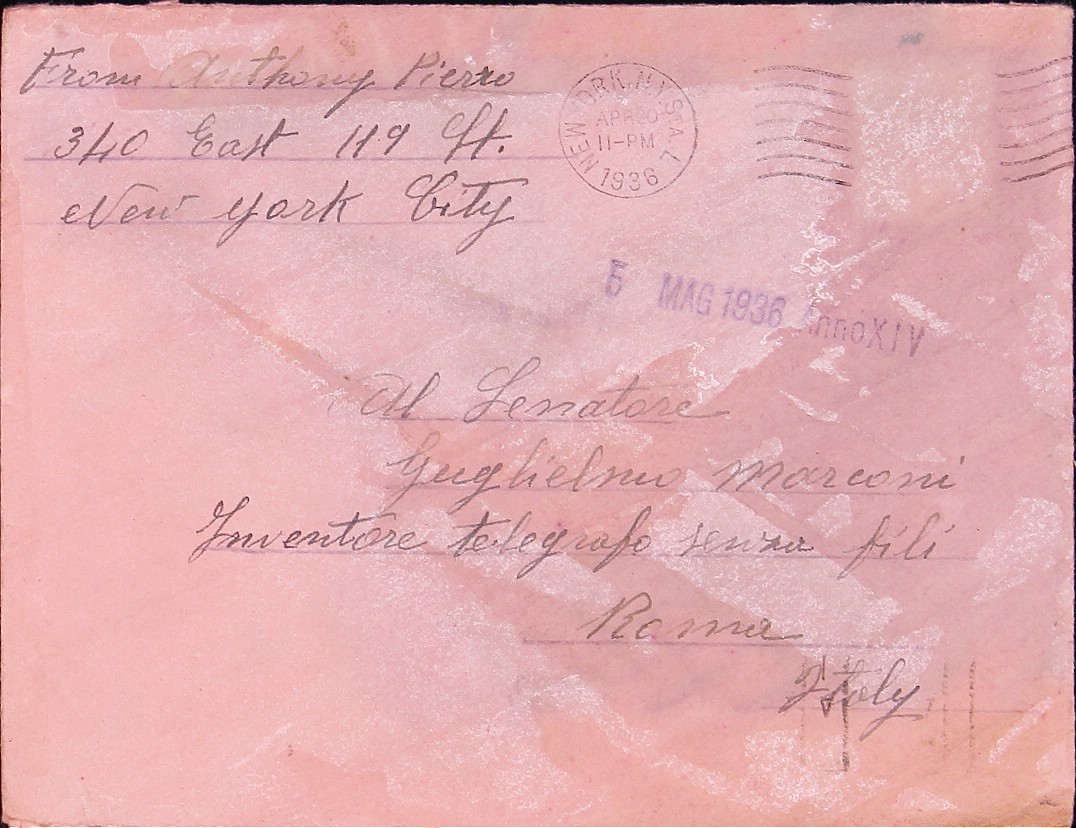 From Anthony Pierro
340 East 119 St.
New York City
NEW YORK, N.Y. STA. L
APR 20
11-PM
1936
5 MAG 1936 Anno XIV
Al Senatore
Guglielmo Marconi
Inventore telegrafo senza fili
Roma
Italy